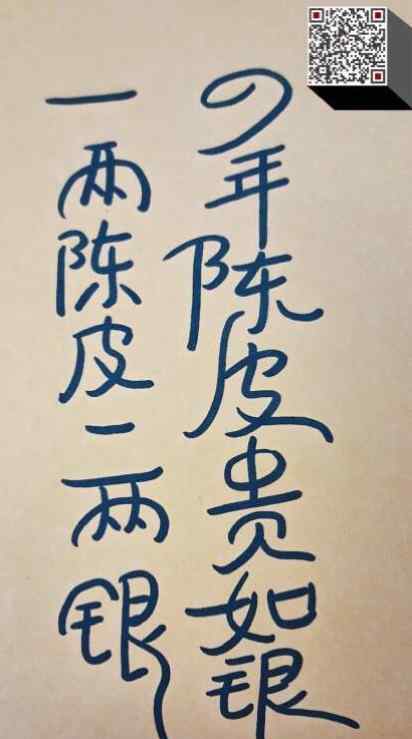 年陈皮贵如银
一两陈皮一两银